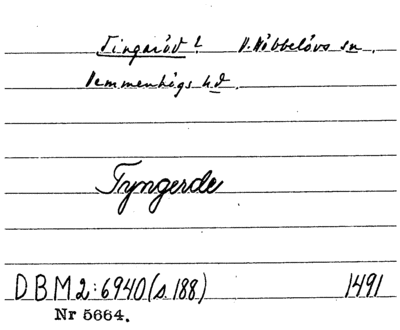 Tingaröd? V. Nöbbelövs sn.
Vemmenhögs hd.
Tyngerde
DBM2:6940 (s. 188) 1491
Nr 5664.